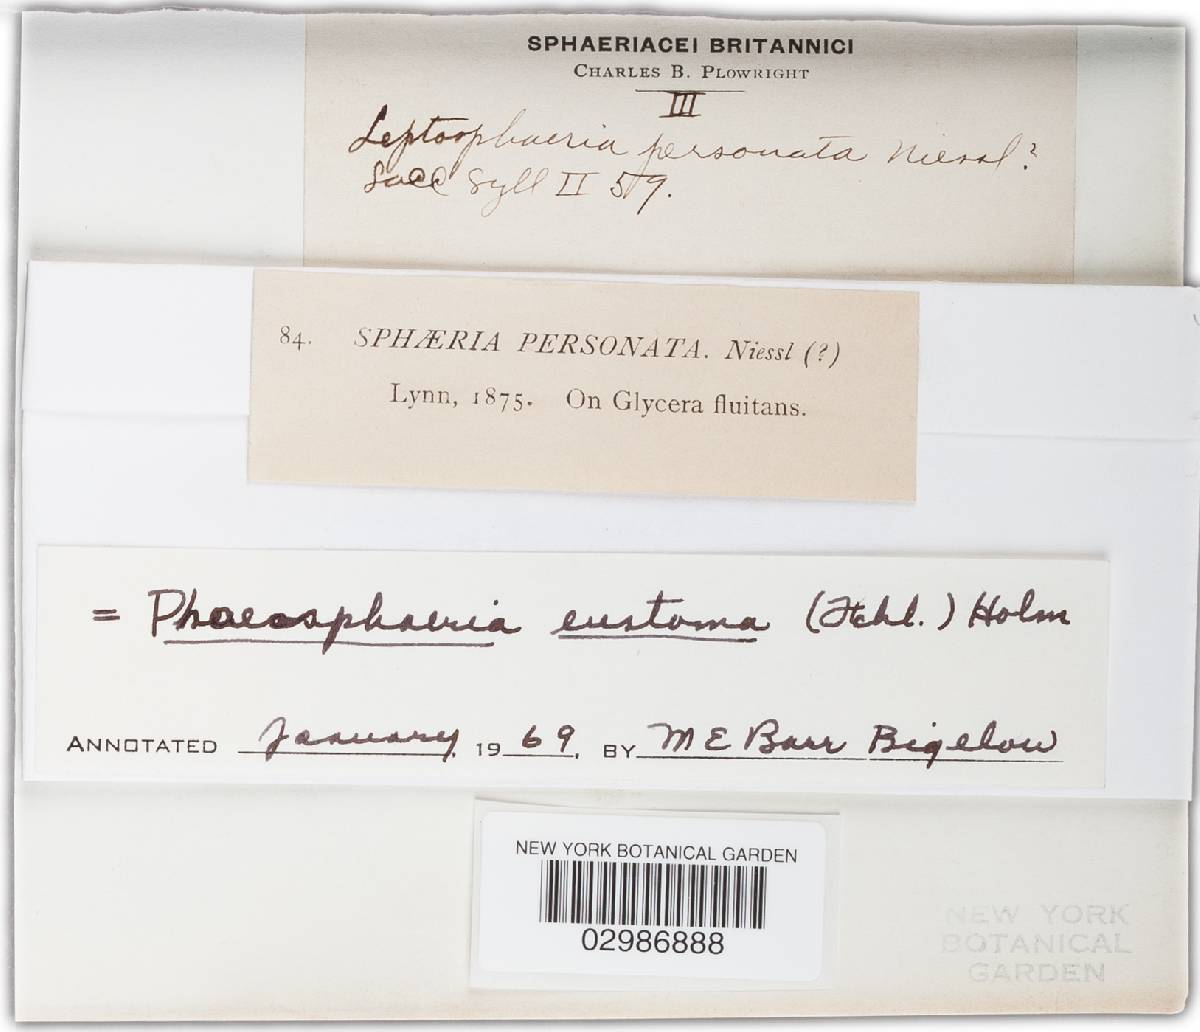 SPHAERIACEI BRITANNICI
CHARLES B. PLOWRIGHT
III
Leptosphaeria personata Niessl?
Sacc Syll II 59.
84. SPHÆRIA PERSONATA. Niessl (?)
Lynn, 1875. On Glycera fluitans.
= Phaeosphaeria eustoma (Fckl.) Holm
ANNOTATED January 1969, BY M E Barr Bigelow
NEW YORK BOTANICAL GARDEN
02986888
NEW YORK
BOTANICAL
GARDEN